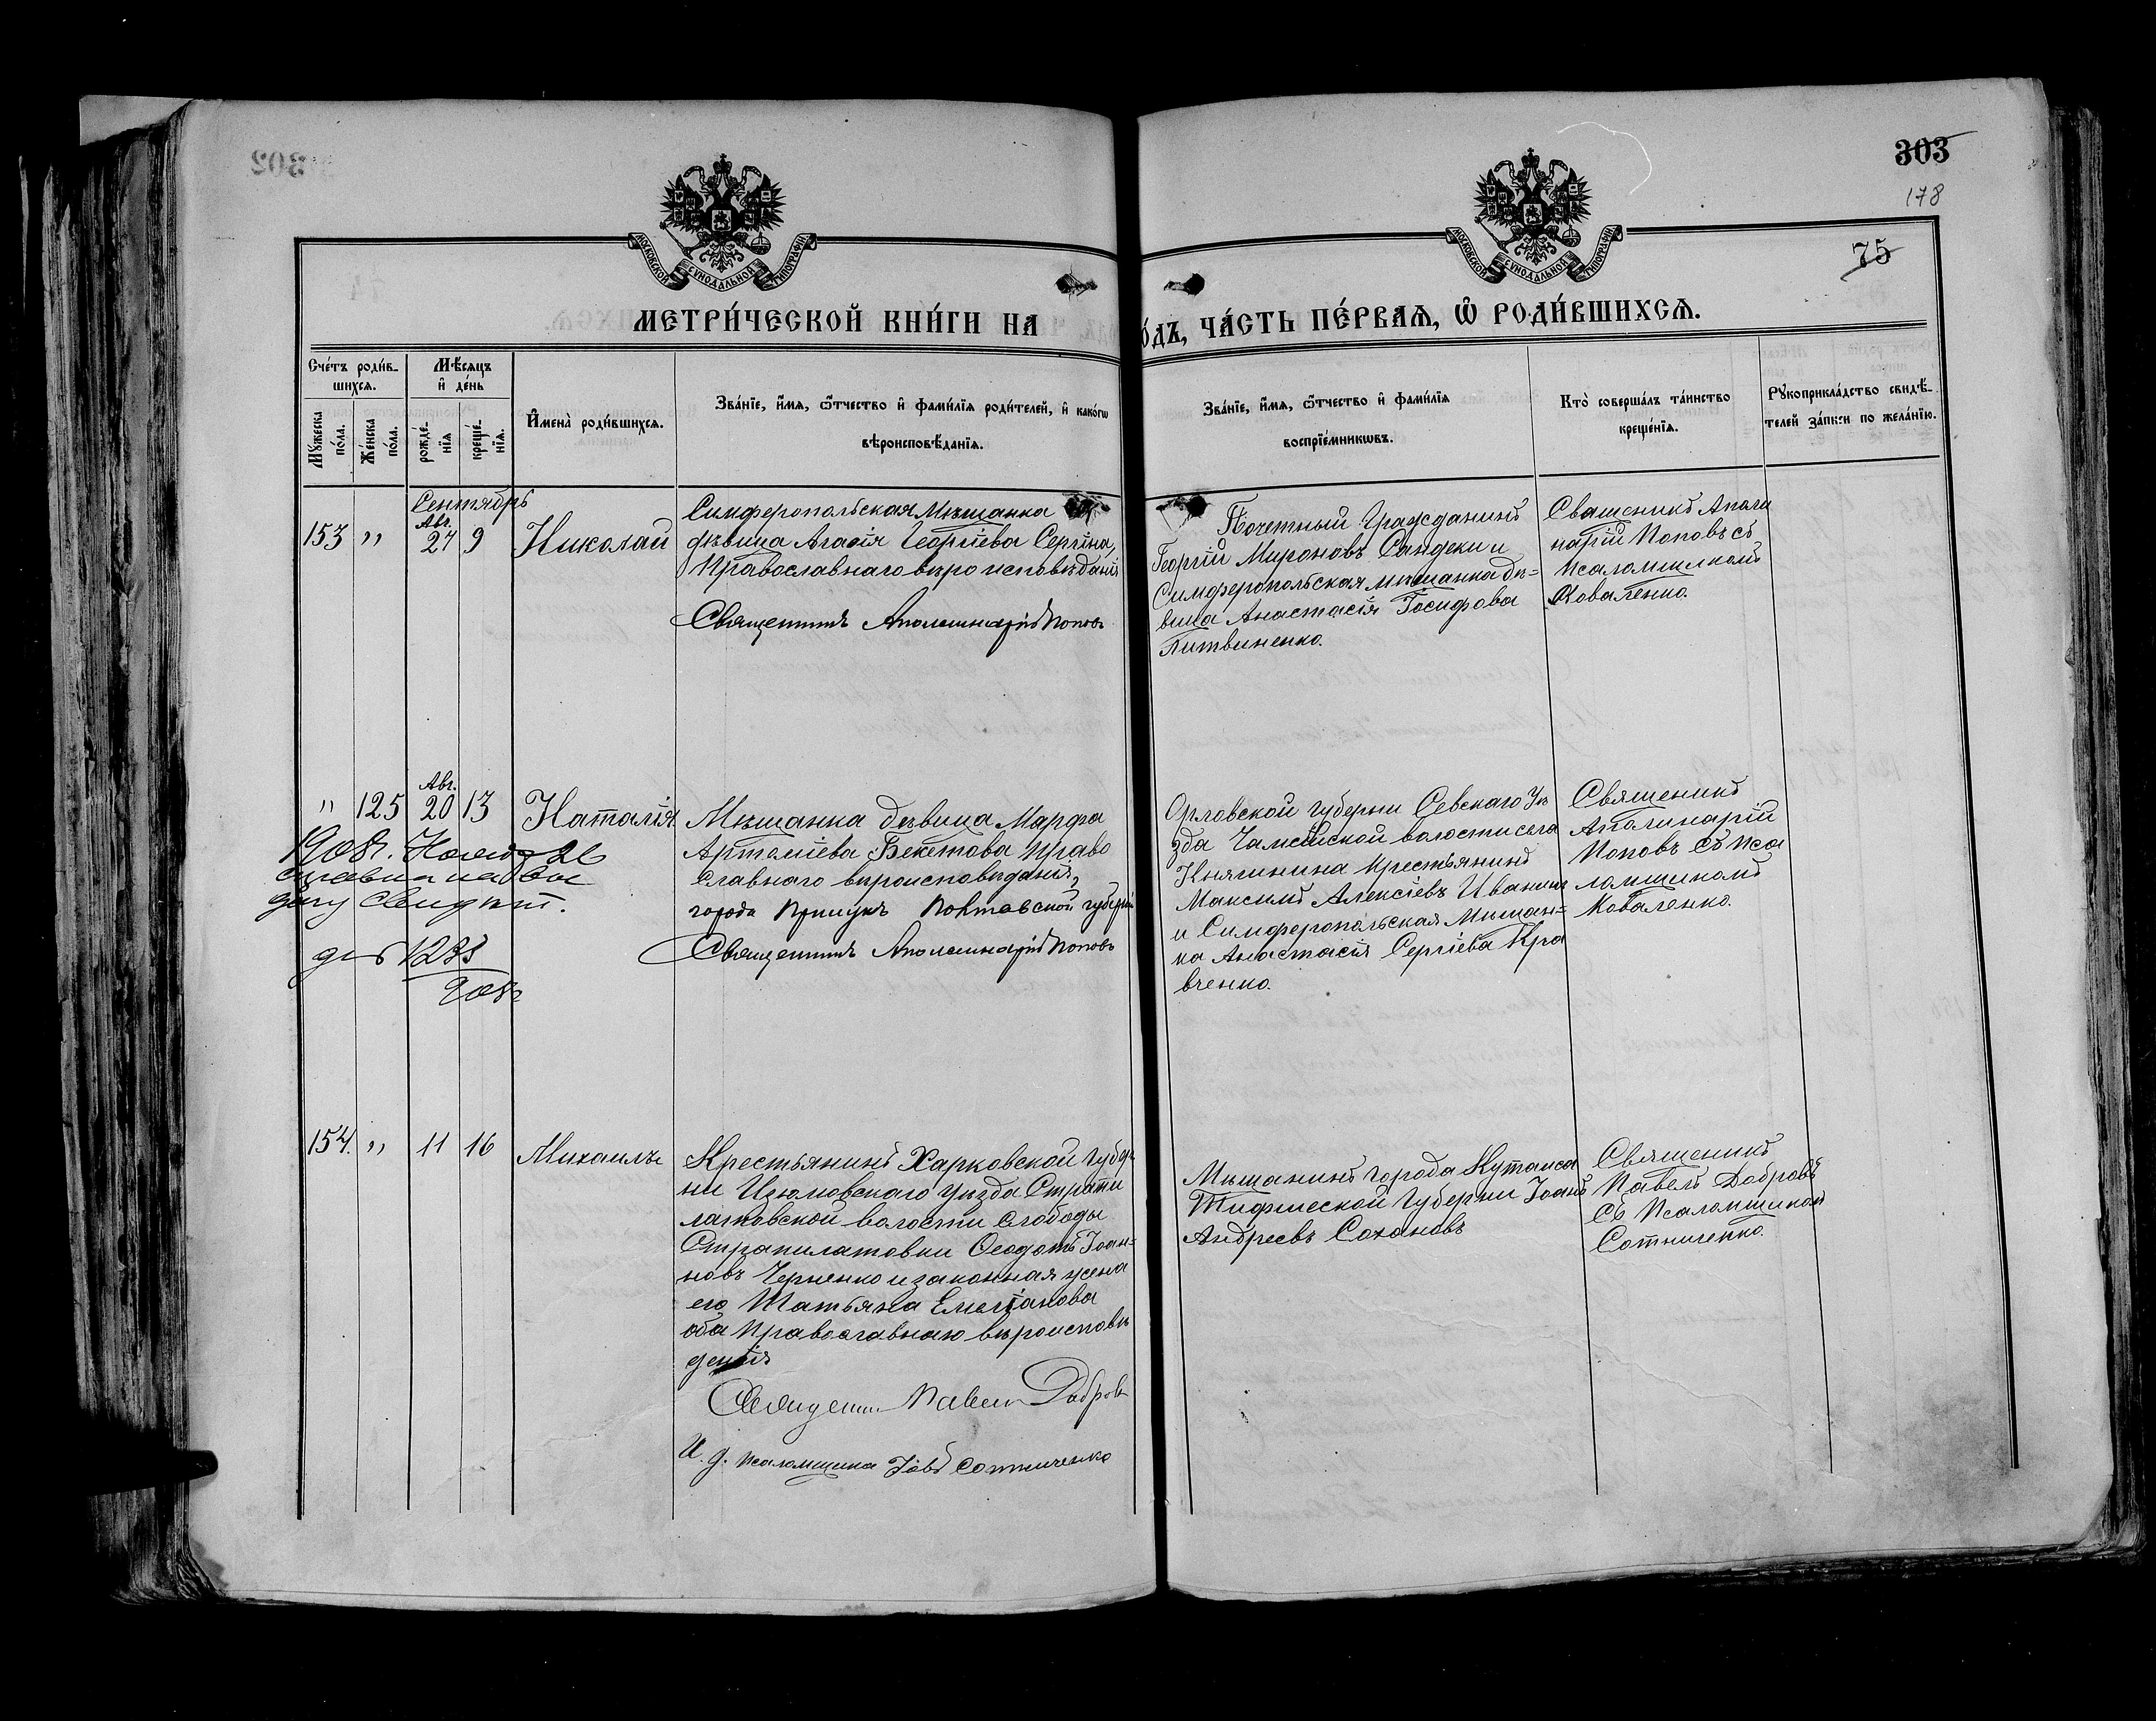 303
178
75
МОСКОВСКОЙ СѴНОДАЛЬНОЙ ТИПОГРАФІИ
МОСКОВСКОЙ СѴНОДАЛЬНОЙ ТИПОГРАФІИ
МЕТРИ́ЧЕСКОЙ КНИ́ГИ НА
О́ДЪ, ЧА́СТЬ ПЕ́РВАѦ, Ѡ РОДИ́ВШИХСѦ.
Сче́тъ роди́в-
шихсѧ.
Мѣ́сѧцъ
и҆ де́нь
Мꙋ́жеска
по́ла.
Же́нска
по́ла.
рожде́-
нїѧ
креще́-
нїѧ.
И҆мена̀ роди́вшихсѧ.
Зва́нїе, и҆́мѧ, ѻ҆́тчество и҆ фами́лїѧ роди́телей, и҆ како́гѡ
вѣроисповѣ́данїѧ.
Зва́нїе, и҆́мѧ, ѻ҆́тчество и҆ фами́лїѧ
воспрїе́мникѡвъ.
Кто̀ соверша́лъ та́инство
креще́нїѧ.
Рꙋкоприкла́дство свидѣ́-
телей за́писи по жела́нїю.
Сентябрь
153 " Авг. 27 9 Николай
Симферопольская Мѣщанка
дѣвица Агафія Георгіева Сергіна,
Православнаго вѣроисповѣданія
Священникъ Аполлинарій Поповъ
Почетный Гражданинъ
Георгій Мироновъ Сандеки и
Симферопольская мѣщанка дѣ-
вица Анастасія Іосифова
Литвиненко.
Священикъ Аполи
нарій Поповъ съ
Псаломщикомъ
Коваленко.
" 125 Авг. 20 13 Наталія
Мѣщанка дѣвица Марфа
Артеміева Бекетова Право
славнаго вѣроисповѣданія,
города Прилукъ Полтавской губерніи
Священникъ Аполлинарій Поповъ
Орловской губерни Севскаго Уѣ
зда Чамлыской волости села
Княгинина крестьянинъ
Максимъ Алексіевъ Иванин
и Симферопольская Мѣщан-
ка Анастасія Сергіева Кра
вченко.
Священикъ
Аполинарій
Поповъ съ Пса
ломщикомъ
Коваленко.
1908 г.
дѣ 1233
908 г
154. " 11 16 Михаилъ
Крестьянинъ Харковской Губер
ни Изюмовскаго уѣзда Страти
латовской волости Слободы
Стратилатовки Ѳеодотъ Іоан-
новъ Черненко и законная жена
его Татьяна Емеліанова
оба православнаго вѣроисповѣ
денія
Священник Павел Добров
И. д. псаломщика Іовъ Сотниченко
Мѣщанинъ города Кутаиса
Тифлиской Губерни Іоанъ
Андреевъ Сохановъ
Священикъ
Павелъ Добровъ
съ Псаломщиком
Сотниченко.